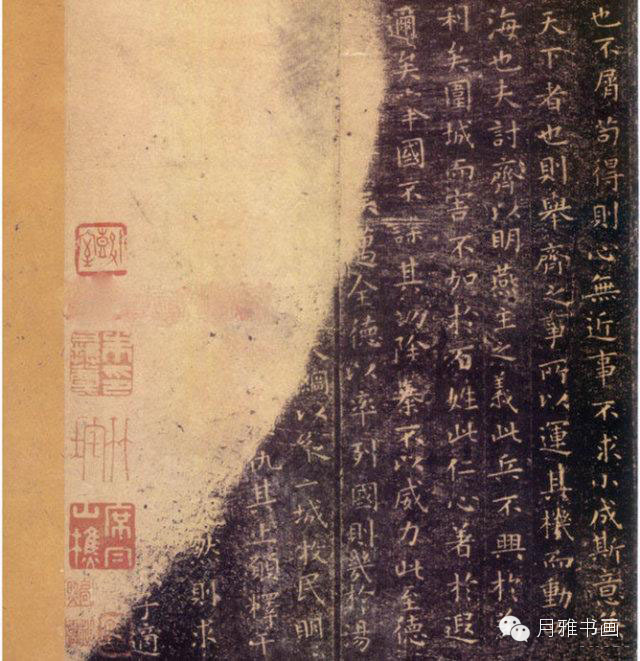 也不屑苟得則心無近事不求小成斯意
天下者也則舉齊之事所以運其機而動
海也夫討齊以明燕主之義此兵不興於
利矣圍城而害不加於百姓此仁心著於遐
邇矣舉國不謀其功除暴不以威力此至德
邁全德以率列國則幾於湯
綱以縱二城收民明
仇其上願釋干
則求
子適
月雅书画